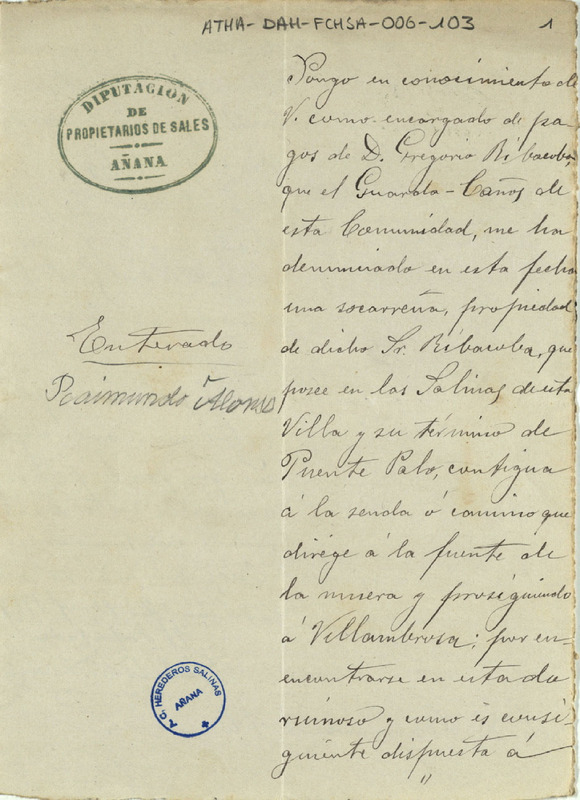 ATHA-DAH-FCHSA-006-103
1
DIPUTACIÓN
DE
PROPIETARIOS DE SALES
AÑANA
Pongo en conocimiento de
V. como encargado de pa-
gos de D. Gregorio Ribacoba,
que el Guarda-Caños de
esta Comunidad, me ha
denunciado en esta fecha
una socarreña, propiedad
de dicho Sr. Ribacoba, que
posee en las Salinas de esta
Villa y su término de
Puente Palo, contigua
á la senda ó camino que
dirége á la fuente de
la muera y prosiguiendo
á Villambrosa; por en-
encontrarse en estado
rruinoso y como es consi-
guiente dispuesta á
"
Enterado
Raimundo Alonso
T. C. HEREDEROS SALINAS
AÑANA